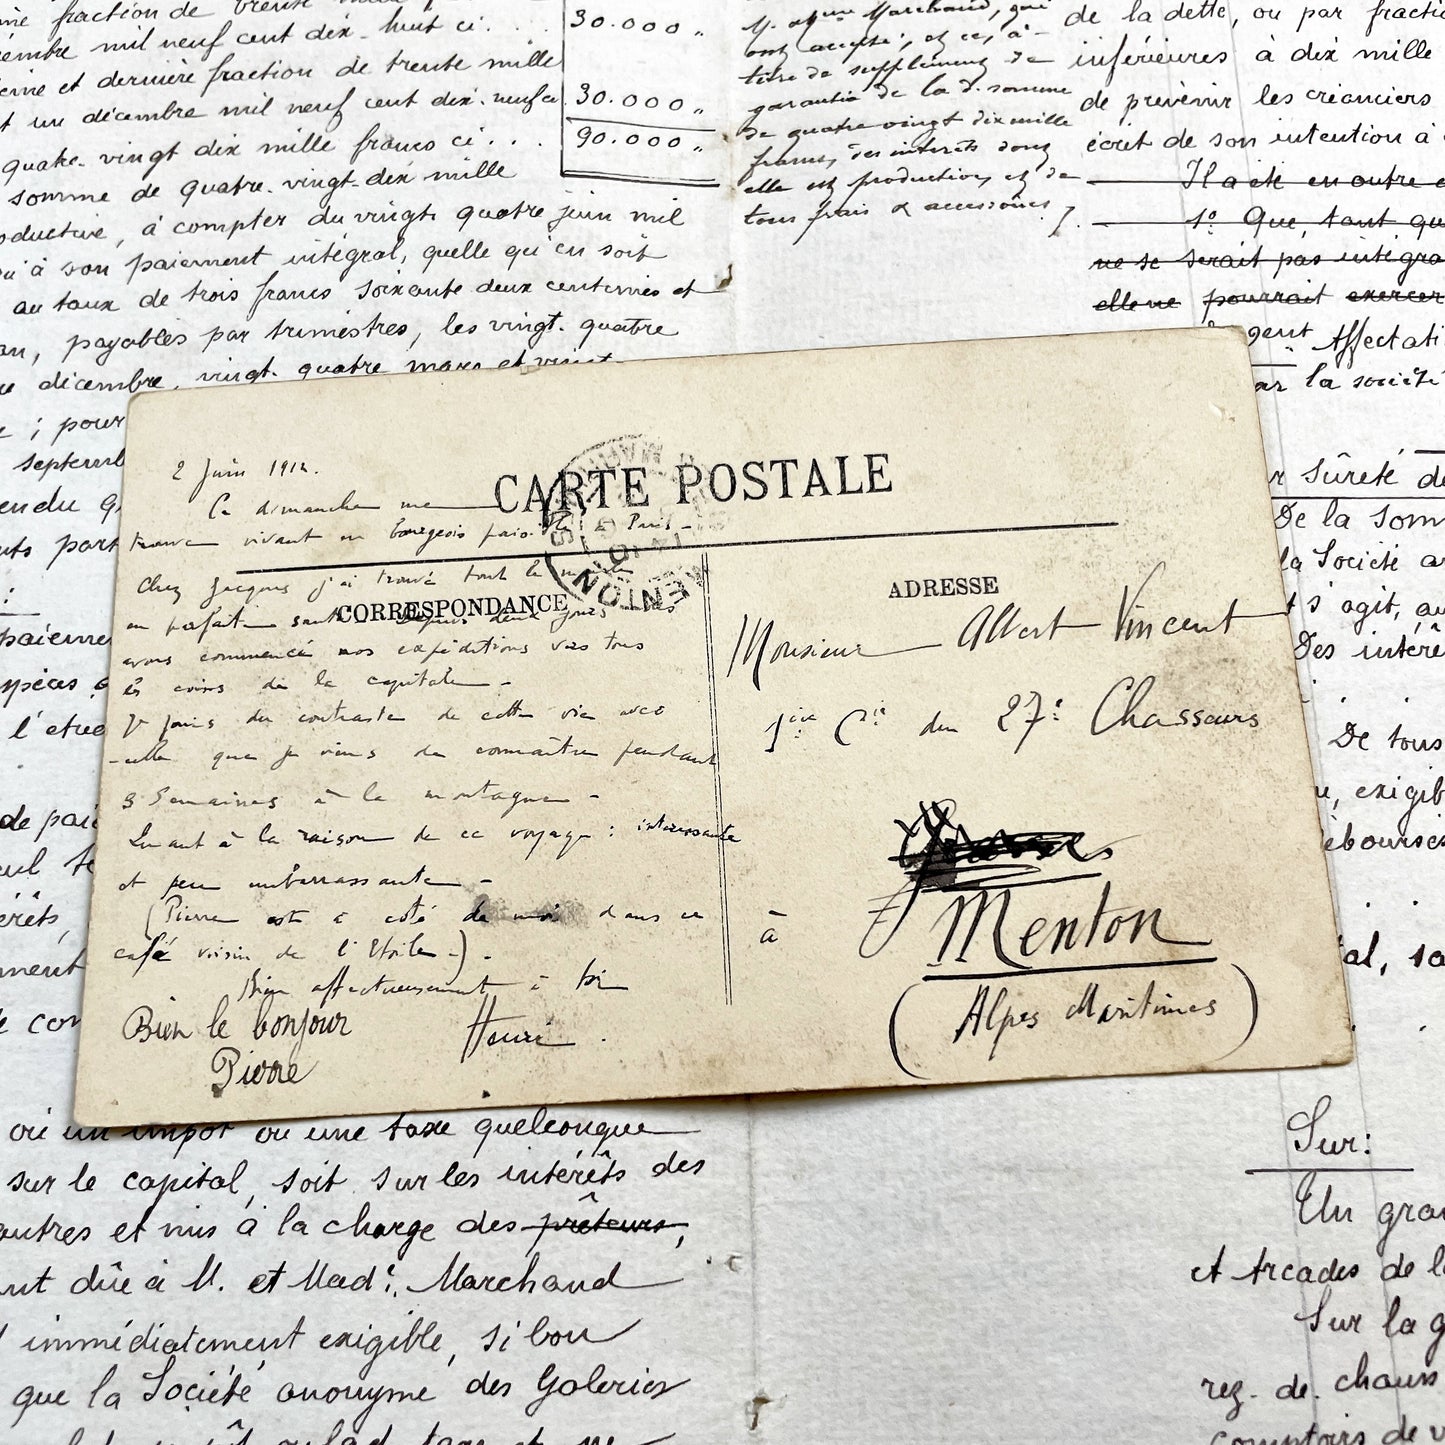 fraction de trente mille
décembre mil neuf cent dix-huit ci . . .
30.000 "
et dernière fraction de trente mille
un décembre mil neuf cent dix-neuf ci
30.000 "
quatre-vingt dix mille francs ci . . .
90.000 "
somme de quatre-vingt-dix mille
productive, à compter du vingt quatre juin mil
qu'à son paiement intégral, quelle qu'en soit
au taux de trois francs soixante deux centimes et
an, payables par trimestres, les vingt-quatre
décembre, vingt-quatre mars et vingt
; pour
septemb
endu
part
:
paiem
espèces
l'étre
de pai
intérêts,
M. et Mme Marchand, qui
ont accepté, et ce, à
titre de supplément de
garantie de la d. somme
de quatre vingt dix mille
francs, des intérêts dont
elle est productive, et de
tous frais & accessoires ./.
de la dette, ou par fracti
inférieures à dix mille
de prévenir les créanciers
écrit de son intention à
Il a été en outre
1º Que, tant qu
ne se serait pas intégra
elle ne pourrait exercer
gent Affectati
par la société
r sûreté de
De la som
la Société a
s'agit, au
Des intérê
De tous
u, exigib
ébourses
al, sa
CARTE POSTALE
CORRESPONDANCE
ADRESSE
MENTON
2 Juin 1912.
Ce dimanche me
trouve vivant en bourgeois à Paris -
Chez Jacques j'ai trouvé tout le monde
en parfaite santé. Depuis deux jours
avons commencé nos expéditions vers tous
les coins de la capitale -
Je jouis du contraste de cette vie avec
celle que je viens de connaître pendant
3 semaines à la montagne -
Quant à la raison de ce voyage : intéressante
et peu embarrassante -
(Pierre est à côté de moi dans ce
café voisin de l'Etoile -) -
Bien affectueusement à toi
Henri .
Bien le bonjour
Pierre
Monsieur Albert Vincent
1ière Cie du 27e Chasseurs
à
Menton
(Alpes Maritimes)
où un impôt ou une taxe quelconque
sur le capital, soit sur les intérêts des
autres et mis à la charge des prêteurs,
dûe à M. et Made. Marchand
immédiatement exigible, si bon
que la Société anonyme des Galeries
Sur :
Un gran
et Arcades de l
Sur la g
rez-de-chauss
comptoirs de v